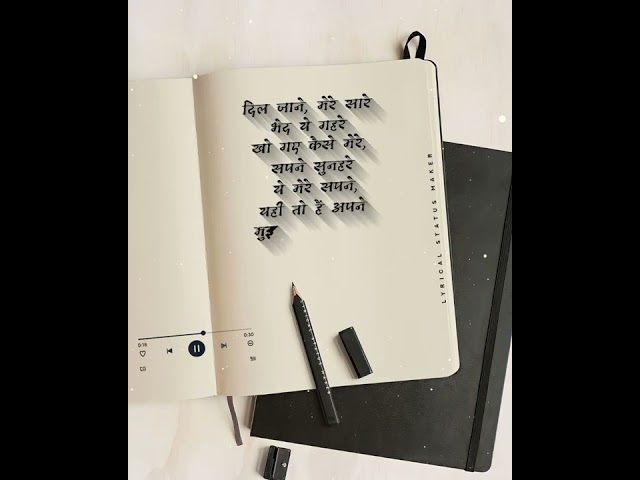 दिल जाने, मेरे सारे
भेद ये गहरे
खो गए कैसे मेरे,
सपने सुनहरे
ये मेरे सपने,
यही तो हैं अपने
LYRICAL STATUS MAKER
0:16
0:30